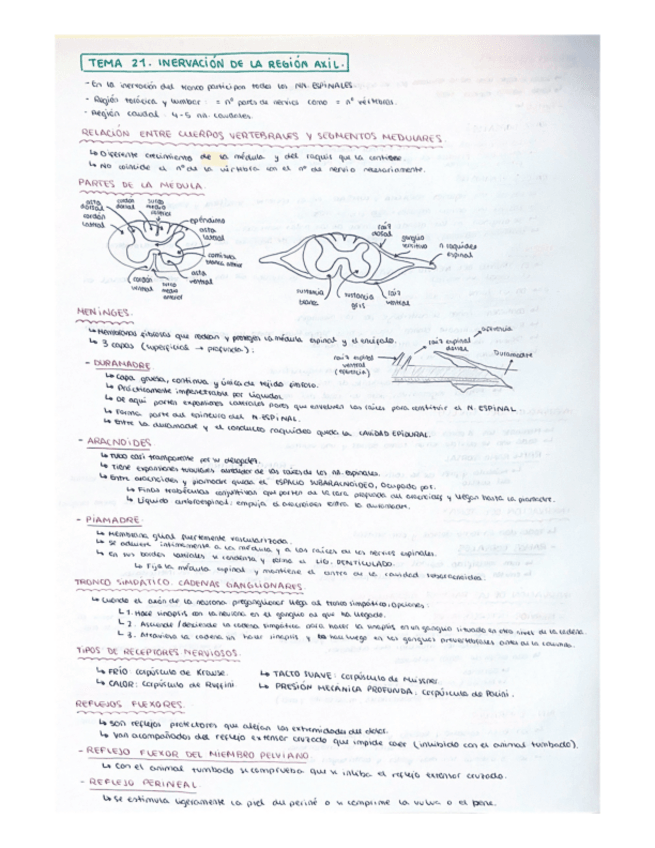 TEMA 21. INERVACIÓN DE LA REGIÓN AXIL.
- En la inervación del tronco participan todos los NN. ESPINALES.
- Región torácica y lumbar: = nº pares de nervios como = nº vértebras.
- Región caudal: 4-5 nn. caudales.
RELACIÓN ENTRE CUERPOS VERTEBRALES Y SEGMENTOS MEDULARES.
↳ Diferente crecimiento de la médula y del raquis que la contiene.
↳ No coincide el nº de la vértebra con el nº de nervio necesariamente.
PARTES DE LA MÉDULA.
asta dorsal
cordón dorsal
surco medio dorsal
epéndimo
cordón lateral
asta lateral
comisura blanca
asta ventral
cordón ventral
surco medio
raíz dorsal
ganglio
n raquídeo espinal
sustancia blanca
sustancia gris
raíz ventral
MENINGES.
↳ Membranas fibrosas que rodean y protegen la médula espinal y el encéfalo.
↳ 3 capas (superficial → profunda):
raíz espinal ventral
raíz espinal dorsal
Duramadre
- DURAMADRE
↳ Capa gruesa, continua y única de tejido fibroso.
↳ Prácticamente impenetrable por líquidos.
↳ De aquí parten expansiones laterales pares que envuelven las raíces para constituir el N. ESPINAL
↳ Forma parte del epineuro del N. ESPINAL.
↳ Entre la duramadre y el conducto raquídeo queda la CAVIDAD EPIDURAL.
- ARACNOIDES
↳ Tubo casi transparente por su delgadez.
↳ Tiene expansiones tubulares alrededor de las raíces de los NN. espinales.
↳ Entre aracnoides y piamadre queda el ESPACIO SUBARACNOIDEO, ocupado por:
↳ Finas trabéculas conjuntivas que parten de la cara profunda del aracnoides y llegan hasta la piamadre.
↳ Líquido cerebroespinal: empuja el aracnoides contra la duramadre.
- PIAMADRE.
↳ Membrana igual fuertemente vascularizada.
↳ Se adhiere íntimamente a la médula y a las raíces de los nervios espinales.
↳ En sus bordes laterales se condensa y forma el LIG. DENTICULADO.
↳ Fija la médula espinal y mantiene el centro de la cavidad subaracnoidea.
TRONCO SIMPÁTICO. CADENAS GANGLIONARES.
↳ Cuando el axón de la neurona preganglionar llega al tronco simpático, opciones:
↳ 1. Hace sinapsis con la neurona en el ganglio al que ha llegado.
↳ 2. Asciende/desciende la cadena simpática para hacer la sinapsis en un ganglio situado en otro nivel de la cadena.
↳ 3. Atraviesa la cadena sin hacer sinapsis y la hace luego en los ganglios prevertebrales
TIPOS DE RECEPTORES NERVIOSOS.
↳ FRÍO: corpúsculo de Krause.
↳ TACTO SUAVE: corpúsculo de Meissner.
↳ CALOR: corpúsculo de Ruffini
↳ PRESIÓN MECÁNICA PROFUNDA: corpúsculo de Pacini.
REFLEJOS FLEXORES.
↳ Son reflejos protectores que alejan las extremidades del dolor.
↳ Van acompañados del reflejo extensor cruzado que impide caer (inhibido con el animal tumbado).
- REFLEJO FLEXOR DEL MIEMBRO PELVIANO.
↳ Con el animal tumbado se comprueba que se inhiba el reflejo extensor cruzado.
- REFLEJO PERINEAL.
↳ Se estimula ligeramente la piel del periné o se comprime la vulva o el pene.